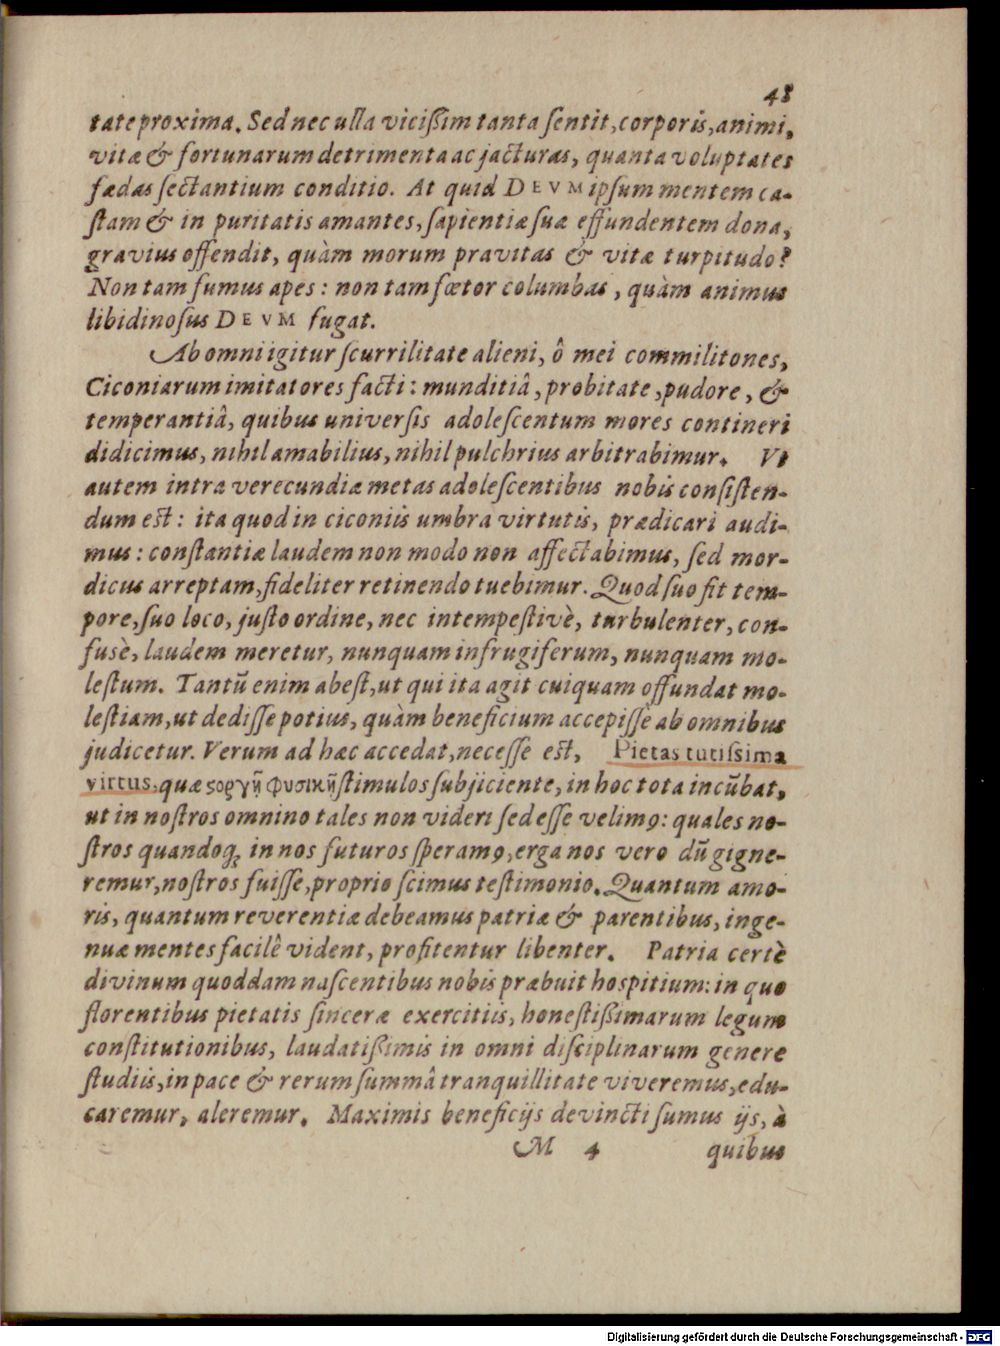 48
tate proxima. Sed nec ulla vicißim tanta ſentit, corporis, animi,
vitæ & fortunarum detrimenta ac jacturas, quanta voluptates
fædas ſectantium conditio. At quid DEVM ipſum mentem ca-
ſtam & in puritatis amantes, ſapientiæ ſuæ effundentem dona,
gravius offendit, quàm morum pravitas & vitæ turpitudo?
Non tam fumus apes: non tam fœtor columbas, quàm animus
libidinoſus DEVM fugat.
Ab omni igitur ſcurrilitate alieni, ô mei commilitones,
Ciconiarum imitatores facti: munditiâ, probitate, pudore, &
temperantiâ, quibus univerſis adoleſcentum mores contineri
didicimus, nihil amabilius, nihil pulchrius arbitrabimur. Vt
autem intra verecundiæ metas adoleſcentibus nobis conſiſten-
dum est: ita quod in ciconiis umbra virtutis, prædicari audi-
mus: conſtantiæ laudem non modo non affectabimus, ſed mor-
dicus arreptam, fideliter retinendo tuebimur. Quod ſuo fit tem-
pore, ſuo loco, juſto ordine, nec intempeſtivè, turbulenter, con-
fusè, laudem meretur, nunquam infrugiferum, nunquam mo-
leſtum. Tantũ enim abeſt, ut qui ita agit cuiquam offundat mo-
leſtiam, ut dediſſe potius, quàm beneficium accepiſſe ab omnibus
judicetur. Verum ad hæc accedat, neceſſe est, Pietas tutiſsima
virtus, quæ ϛοργῇ Φυσικῇ ſtimulos ſubjiciente, in hoc tota incũbat,
ut in noſtros omnino tales non videri ſed eſſe velimꝰ: quales no-
ſtros quandoq; in nos futuros ſperamꝰ, erga nos vero dũ gigne-
remur, noſtros fuiſſe, proprio ſcimus teſtimonio. Quantum amo-
ris, quantum reverentiæ debeamus patriæ & parentibus, inge-
nuæ mentes facilè vident, profitentur libenter. Patria certè
divinum quoddam naſcentibus nobis præbuit hoſpitium: in quo
florentibus pietatis ſinceræ exercitiis, honeſtißimarum legum
conſtitutionibus, laudatißimis in omni diſciplinarum genere
ſtudiis, in pace & rerum ſummâ tranquillitate viveremus, edu-
caremur, aleremur. Maximis beneficijs devincti ſumus ijs, à
M 4 quibus
Digitalisierung gefördert durch die Deutsche Forschungsgemeinschaft - DFG